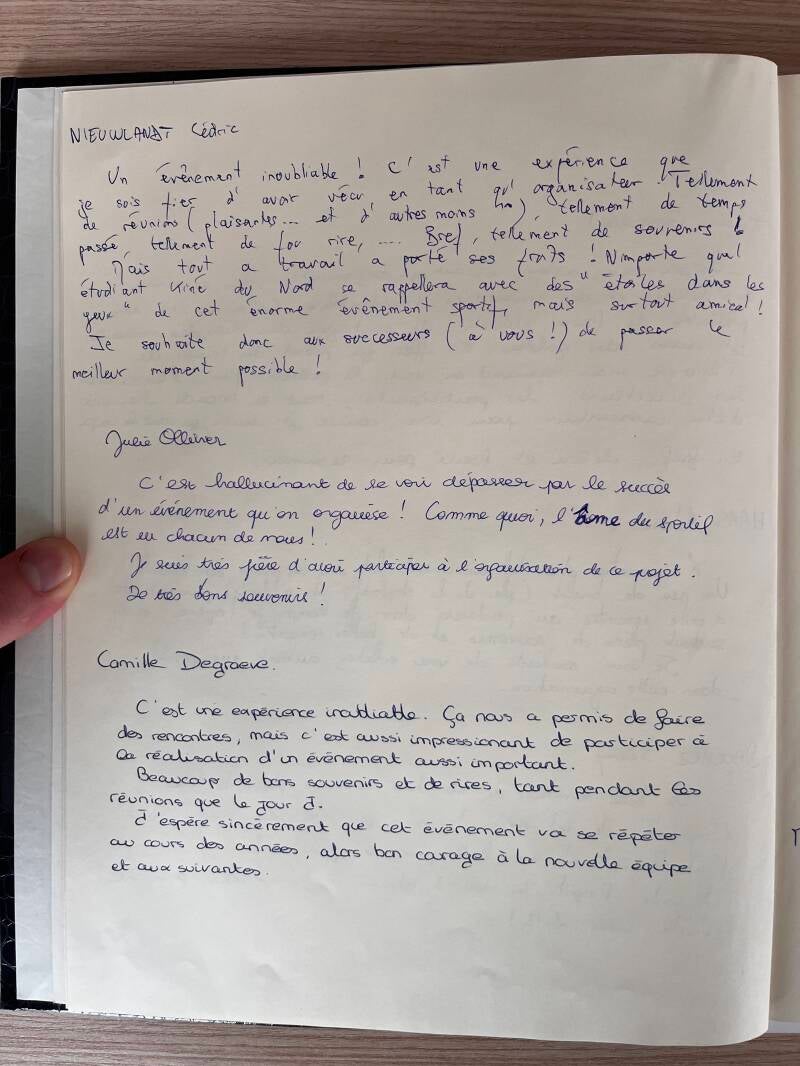 NIEUWLANDT Cédric
Un évènement inoubliable ! C'est une expérience que
je suis fier d'avoir vécu en tant qu'organisateur. Tellement
de réunions (plaisantes... et d'autres moins), tellement de temps
passé, tellement de fou rire, .... Bref, tellement de souvenirs !
Mais tout ce travail a porté ses fruits ! N'importe quel
étudiant kiné du Nord se rappellera avec des "étoiles dans les
yeux" de cet énorme évènement sportif, mais surtout amical !
Je souhaite donc aux successeurs (à vous !) de passer le
meilleur moment possible !
Julie Ollivier
C'est hallucinant de se voir dépasser par le succès
d'un événement qu'on organise ! Comme quoi, l'âme du sportif
est en chacun de nous !
Je suis très fière d'avoir participer à l'organisation de ce projet.
De très bons souvenirs !
Camille Degraeve.
C'est une expérience inoubliable. Ça nous a permis de faire
des rencontres, mais c'est aussi impressionant de participer à
la réalisation d'un évènement aussi important.
Beaucoup de bons souvenirs et de rires, tant pendant les
réunions que le jour J.
J'espère sincèrement que cet évènement va se répéter
au cours des années, alors bon courage à la nouvelle équipe
et aux suivantes.